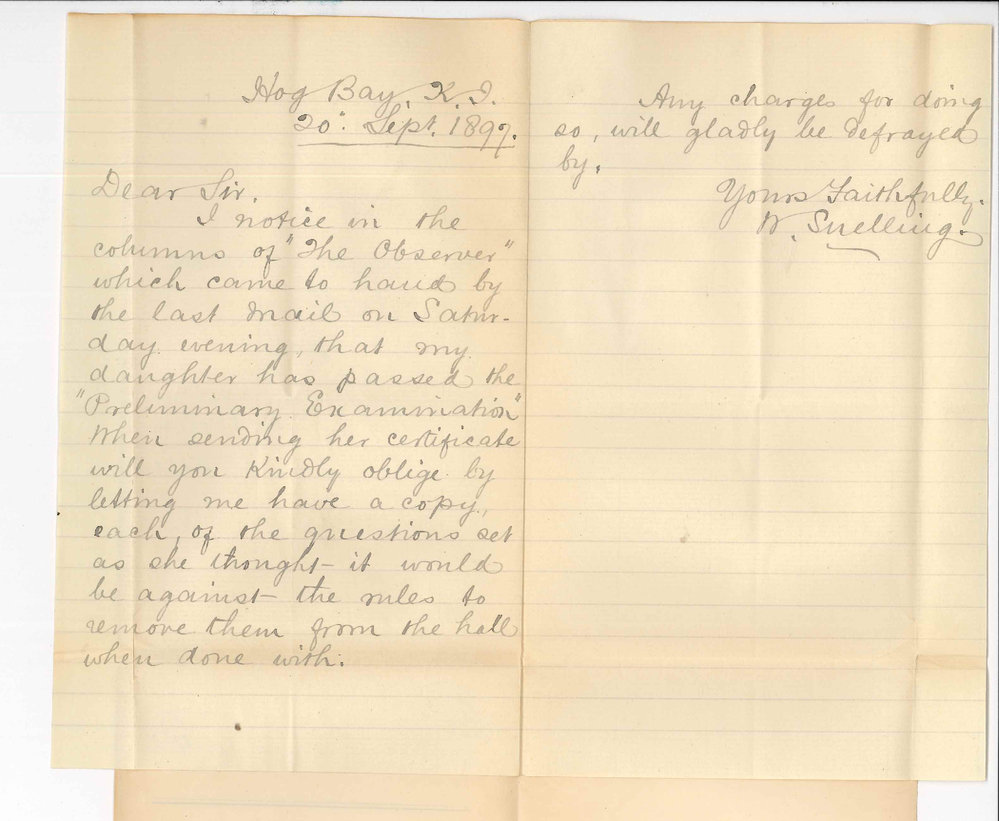 Hog Bay, K. I.
20th. Sept. 1897.
Dear Sir.
I notice in the
columns of "The Observer"
which came to hand by
the last mail on Satur-
day evening, that my
daughter has passed the
"Preliminary Examination"
When sending her certificate
will you kindly oblige by
letting me have a copy,
each, of the questions set
as she thought it would
be against the rules to
remove them from the hall
when done with.
Any charges for doing
so, will gladly be defrayed
by.
Yours Faithfully.
W. Snelling.